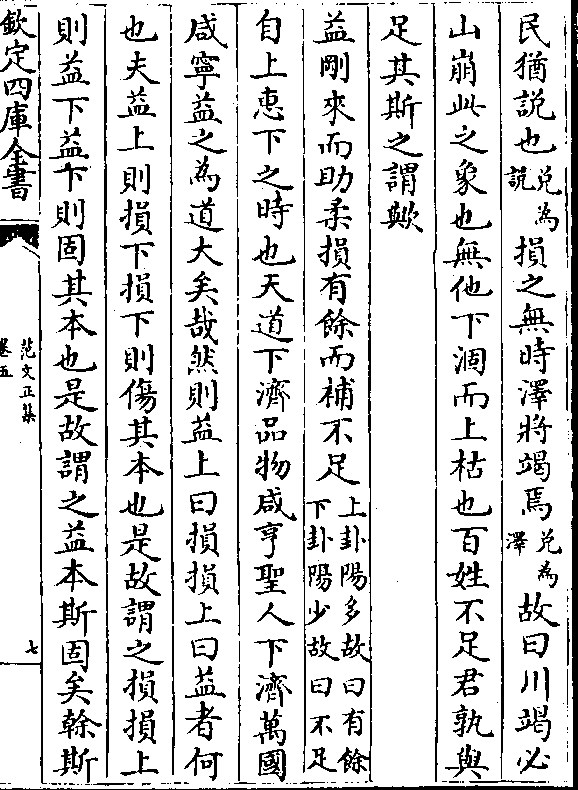 民猶説也兑為説損之無時澤將竭焉兑為澤故曰川竭必
山崩此之象也無他下涸而上枯也百姓不足君孰與
足其斯之謂歟
益剛來而助柔損有餘而補不足上卦陽多故曰有餘下卦陽少故曰不足
自上惠下之時也天道下濟品物咸亨聖人下濟萬國
咸寧益之為道大矣哉然則益上曰損損上曰益者何
也夫益上則損下損下則傷其本也是故謂之損損上
則益下益下則固其本也是故謂之益本斯固矣榦斯
欽定四庫全書
范文正集
卷五
七